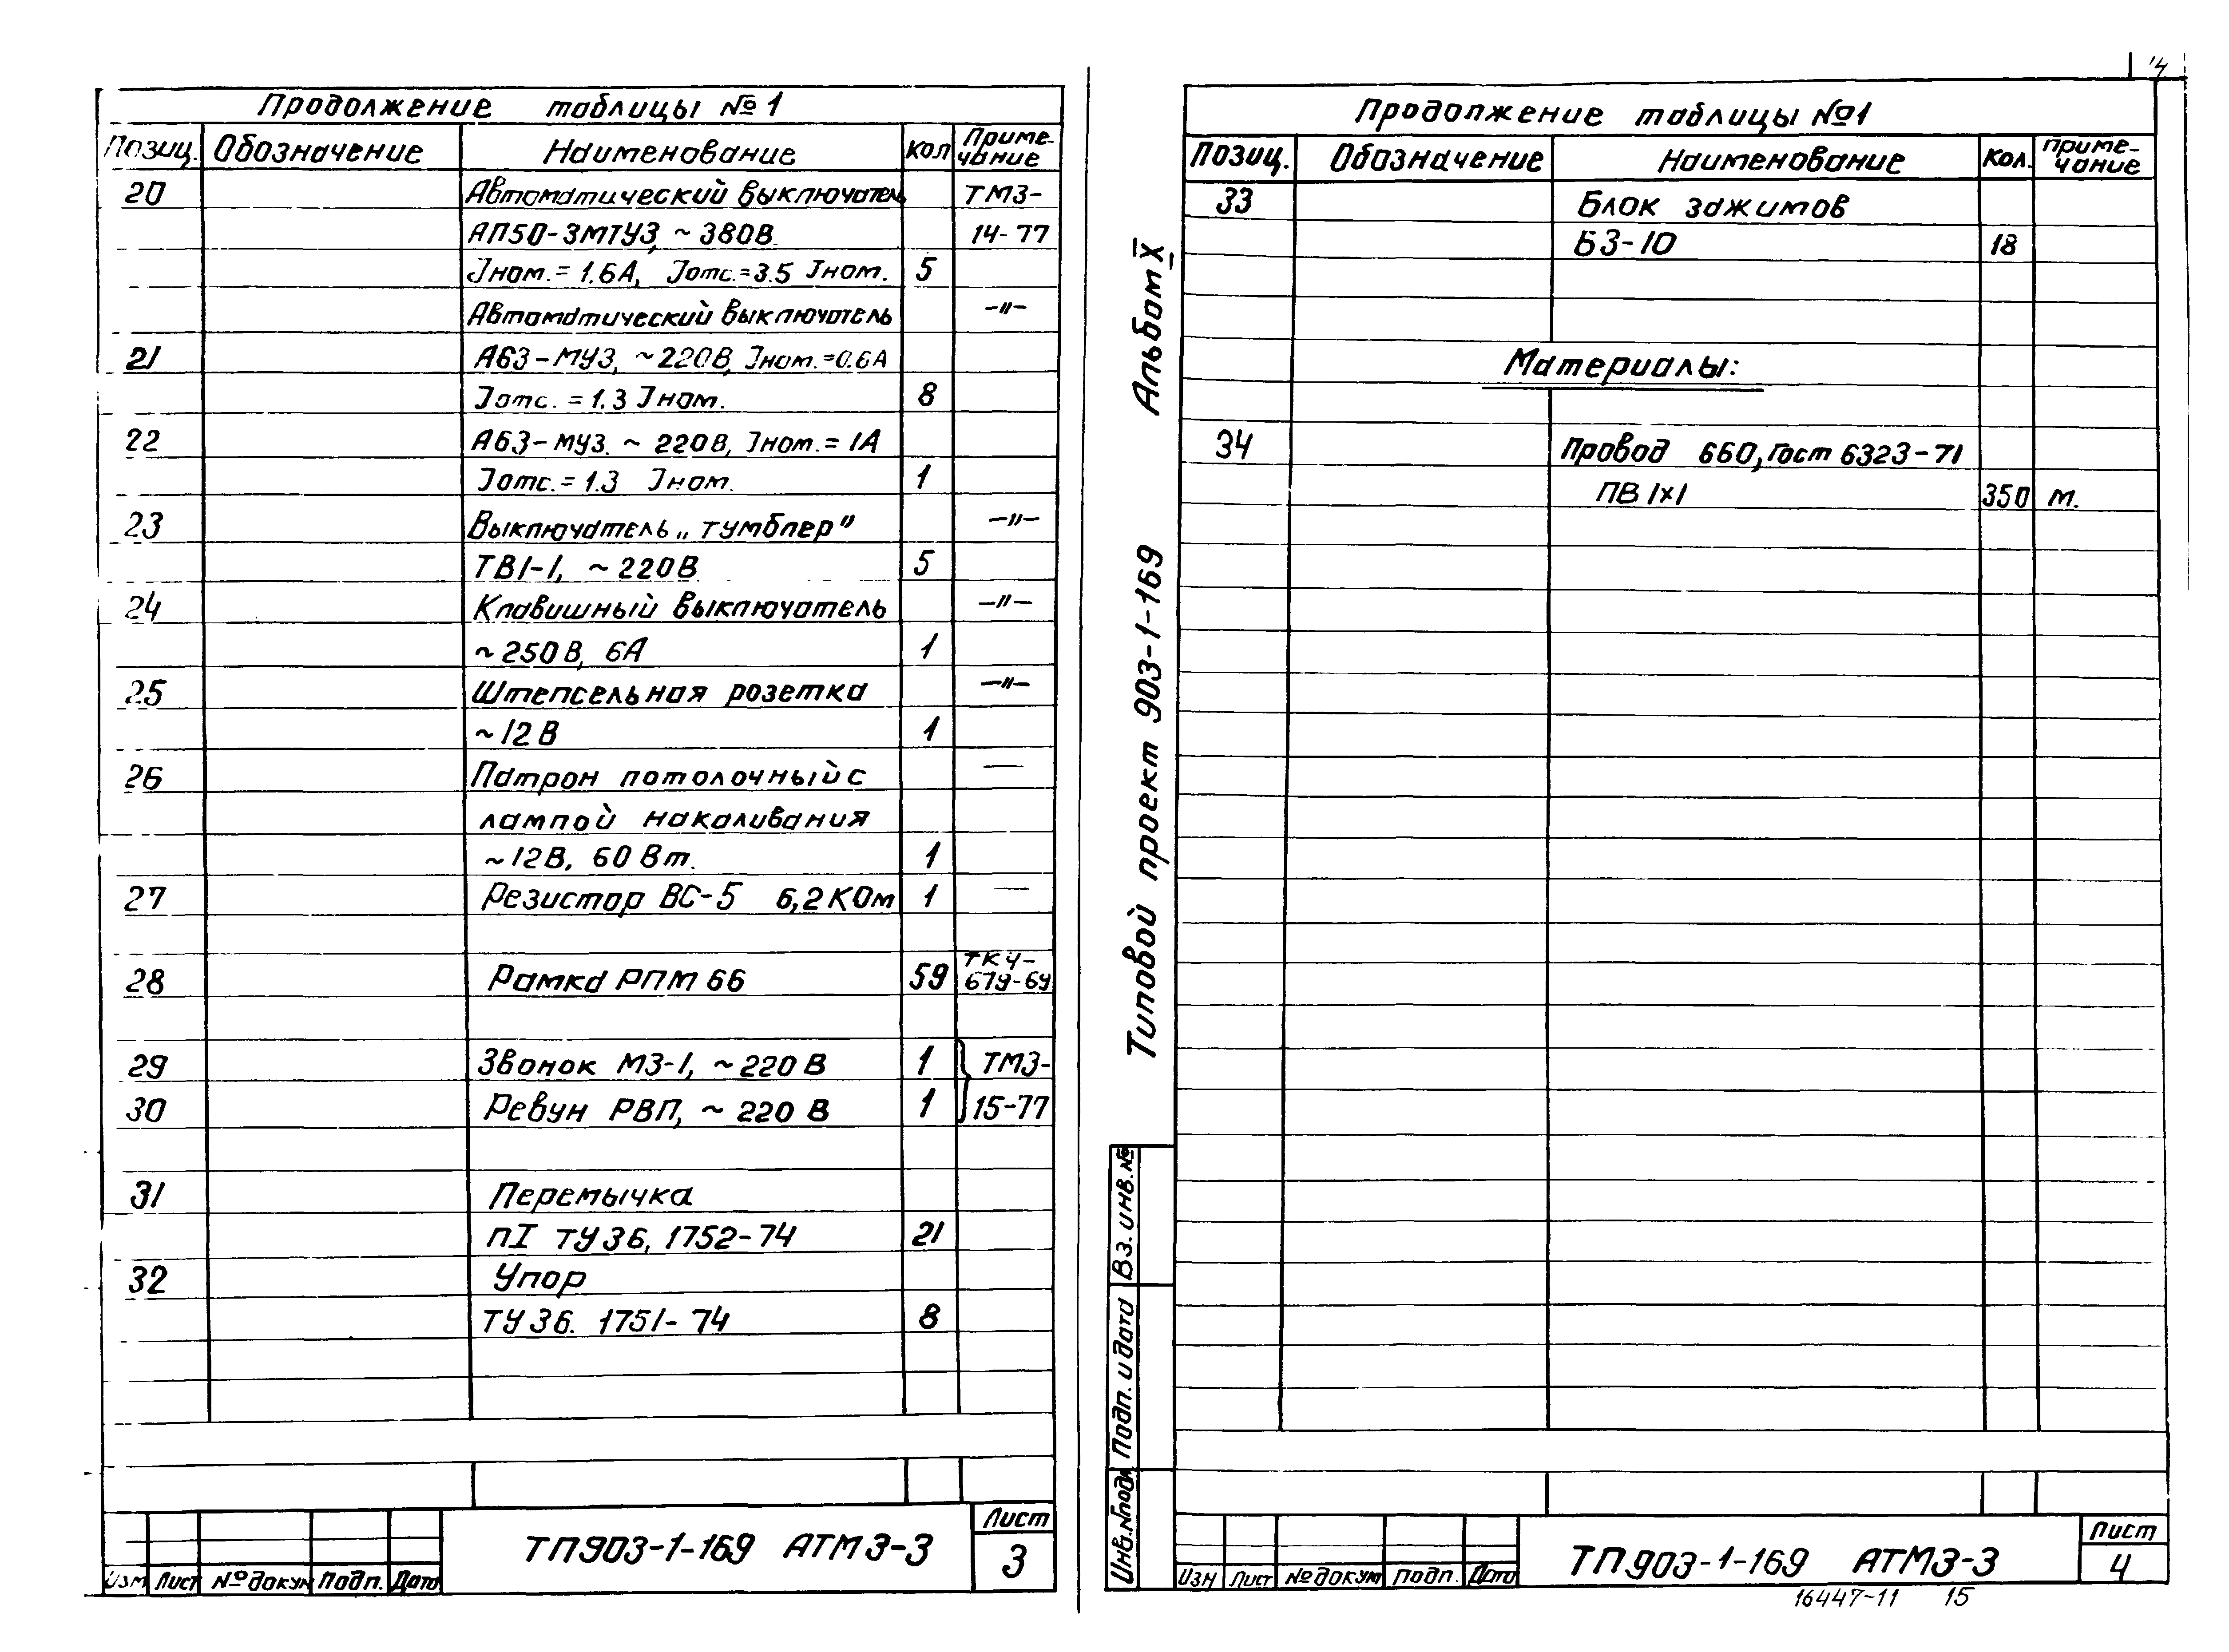 Продолжение таблицы №1
Позиц. Обозначение Наименование Кол Приме-
чание
20 Автоматический выключатель ТМ3-
АП50-3МТУ3, ~ 380В. 14-77
Jном. = 1.6А, Jотс. = 3.5 Jном. 5
Автоматический выключатель –"–
21 А63-МУ3, ~220В, Jном.=0.6А
Jотс. = 1.3 Jном. 8
22 А63-МУ3. ~ 220В, Jном. = 1А
Jотс. = 1.3 Jном. 1
23 Выключатель „тумблер" –"–
ТВ1-1, ~ 220В 5
24 Клавишный выключатель –"–
~ 250В, 6А 1
25 Штепсельная розетка –"–
~12В 1
26 Патрон потолочный с —
лампой накаливания
~12В, 60Вт. 1
27 Резистор ВС-5 6,2КОм 1 —
28 Рамка РПМ 66 59 ТКЧ-
679-69
29 Звонок МЗ-1, ~220В 1 ТМ3-
30 Ревун РВП, ~ 220В 1 15-77
31 Перемычка
ПI ТУ36, 1752-74 21
32 Упор
ТУ36. 1751-74 8
Изм Лист №докум Подп. Дата
ТП903-1-169 АТМ3-3
Лист
3
14
Продолжение таблицы №1
Позиц. Обозначение Наименование Кол. Приме-
чание
33 Блок зажимов
БЗ-10 18
Материалы:
34 Провод 660, Гост 6323-71
ПВ 1×1 350 м.
Альбом X
Типовой проект 903-1-169
Вз. инв. №
Подп. и дата
Инв.№подл
Изм Лист №докум Подп. Дата
ТП903-1-169 АТМ3-3
Лист
4
16447-11 15